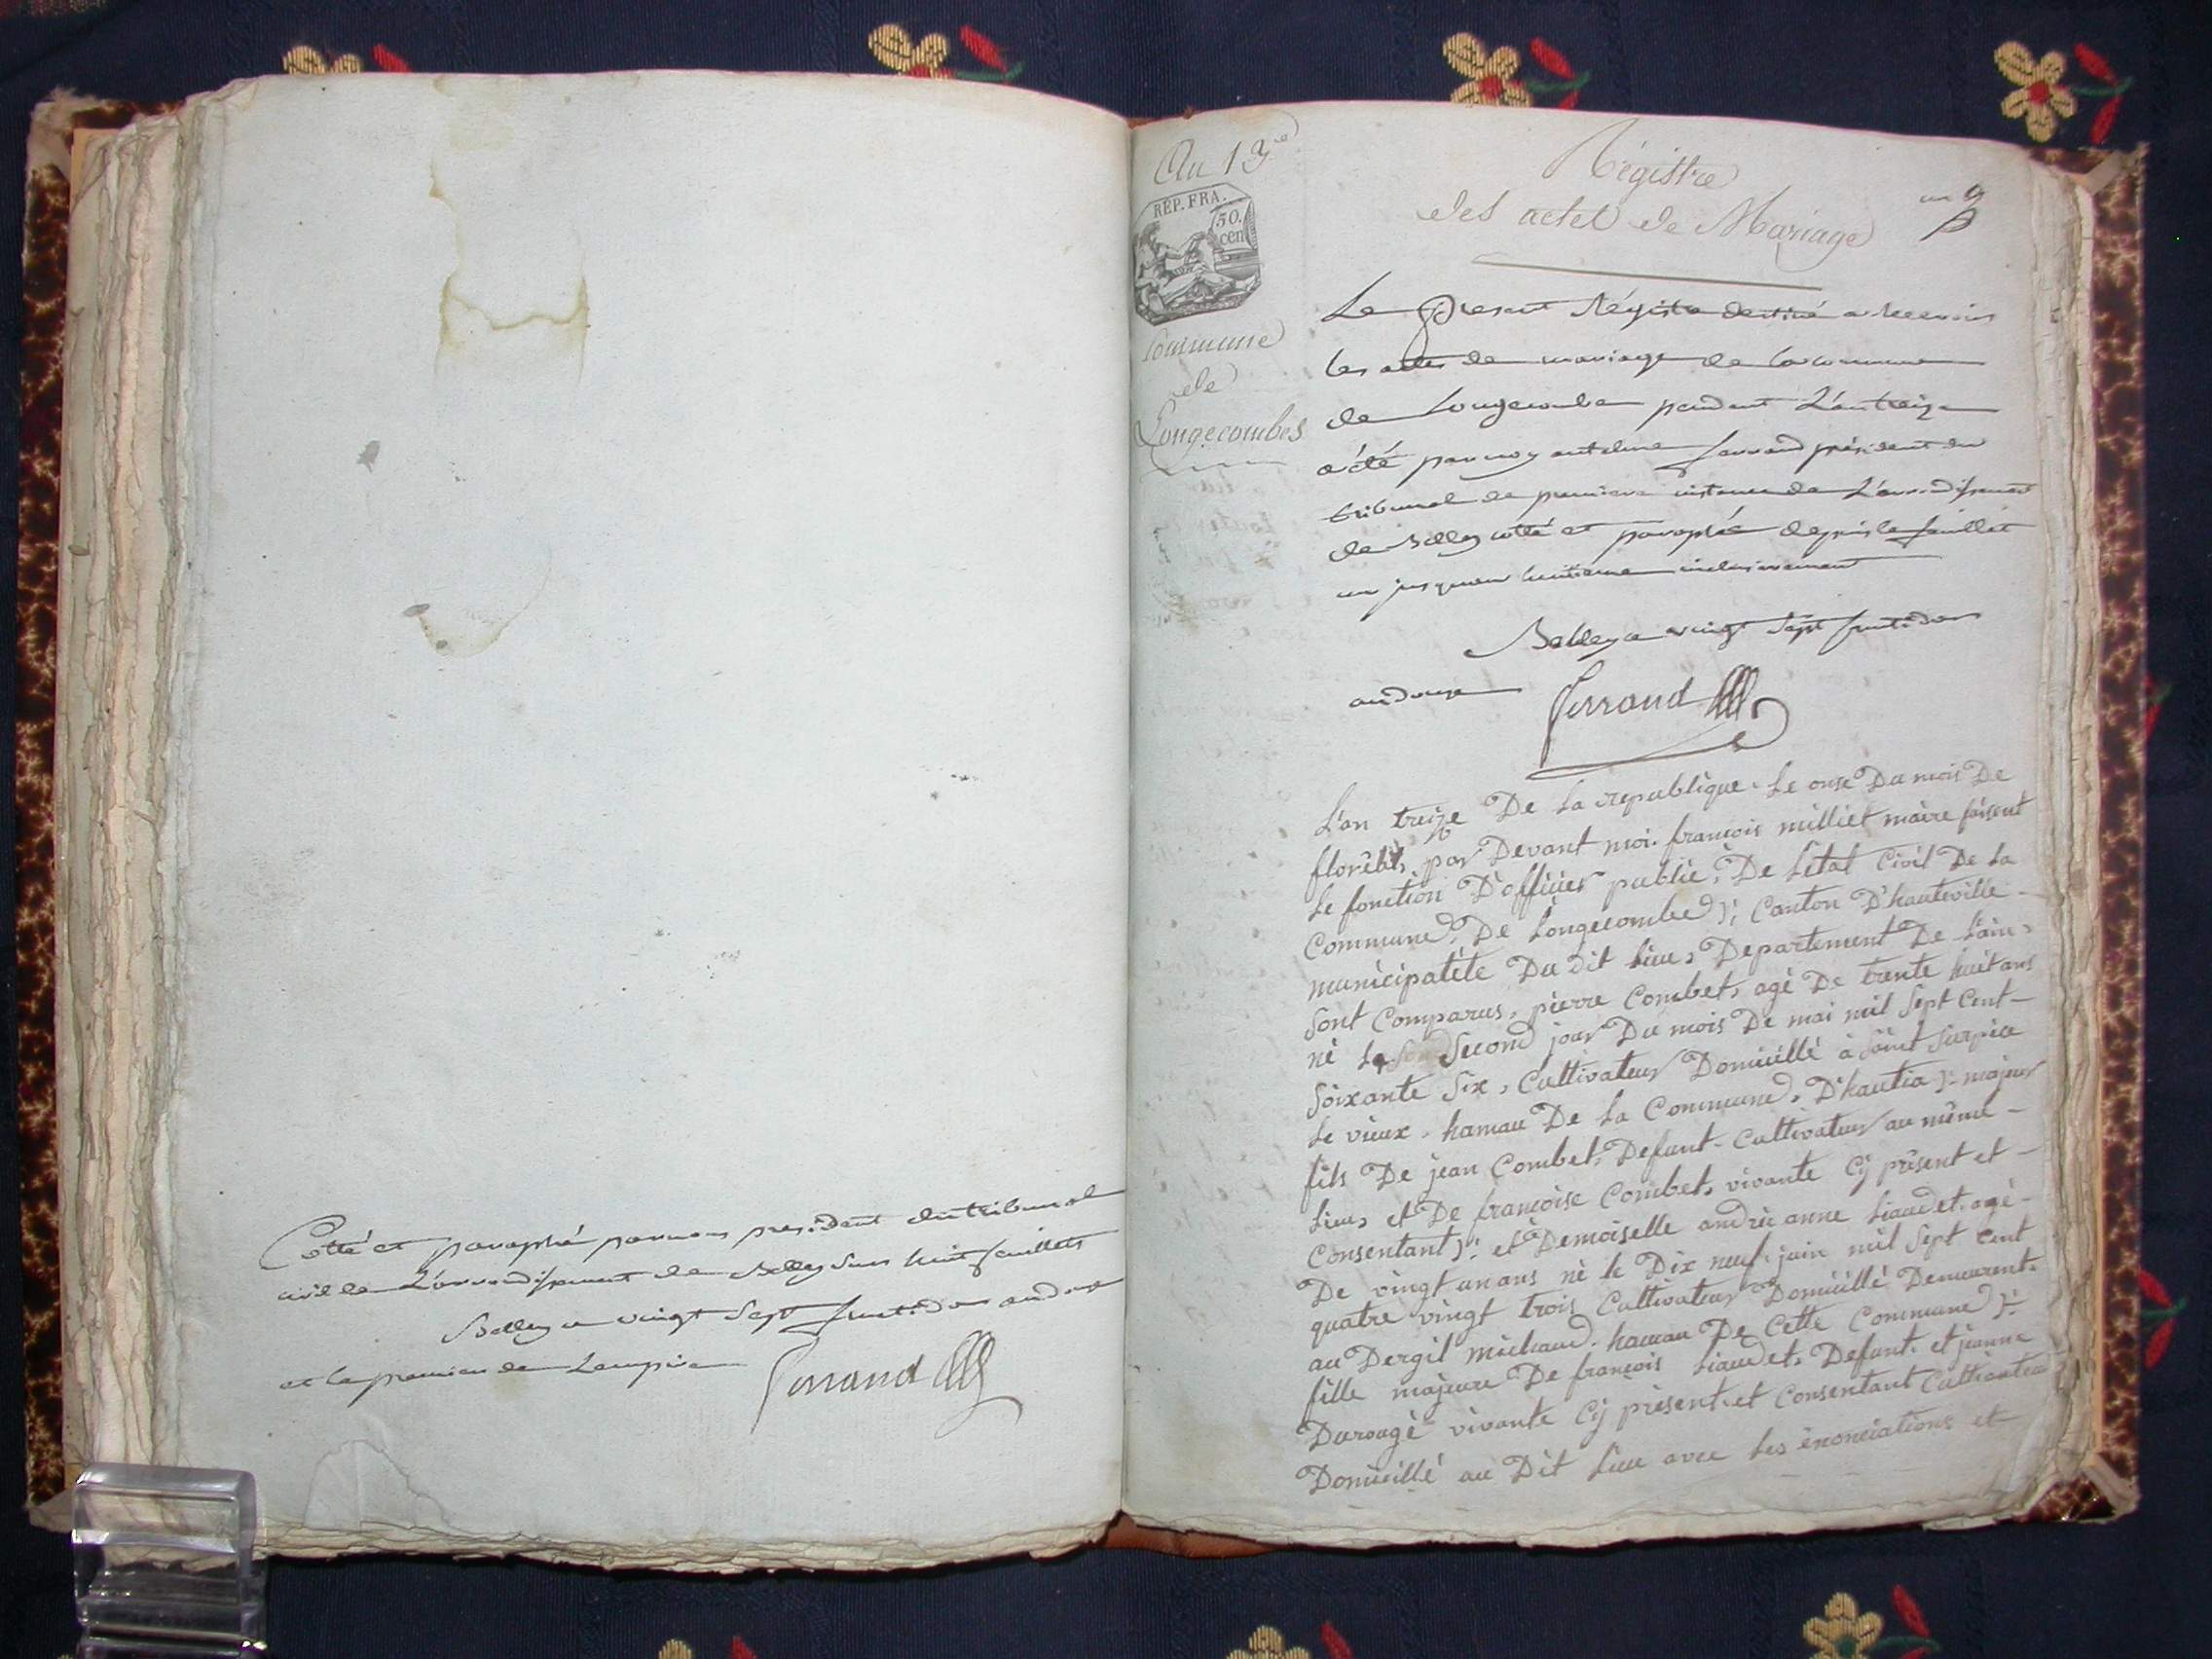 Cotté et paraphé par nous president du tribunal
civil de L'arrondissement de Belley sur huit feuillets
Belley ce vingt Sept fructidor an douze
et le premier de Lempire
Ferrand
An 13e
REP. FRA.
50.
cen
Commune
de
Longecombes
Régistre
des actes de Mariage
un
Le présent Régistre destiné a recevoir
les actes de mariage de la commune
de Longecombe pendant L'an treize
a été par moy antelme ferrand président du
tribunal de premiere instance de L'arrondissement
de Belley cotté et paraphé depuis le feuillet
un jusquau huitieme inclusivement
Belley ce vingt Sept fructidor
an douze
Ferrand
L'an treize De la republique. Le onze Du mois De
florèàl, par Devant moi. francois milliet maire faisent
Le fonction D'officier public, De Létat Civil De La
Commune, De Longecombe, Canton D'hauteville -
municipalité Du dit Lieu, Departement De Lain,
Sont Comparus, pierre Combet, agé De trente huit ans
né Le Second jour Du mois De mai mil Sept Cent -
Soixante Six, Cultivateur Domicillé à Saint Surpice
Le vieux, hamau De La Commune, D'hautia majeur
fils De jean Combet, Defunt. Cultivateur au même -
Lieu, et De francoise Combet, vivante Cy présent et -
Consentant; et Demoiselle andrée anne Liaudet. agé -
De vingt un ans né le Dix neuf juin mil Sept Cent
quatre vingt trois Cultivateur Domicillé Demeurent.
au Dergil michaud. hamau De Cette Commune
fille majeure De francois Liaudet, Defunt. et jeanne
Durougé vivante Cy présent. et Consentant Cultivateur
Domicillé au Dit Lieu avec Les énonciations et